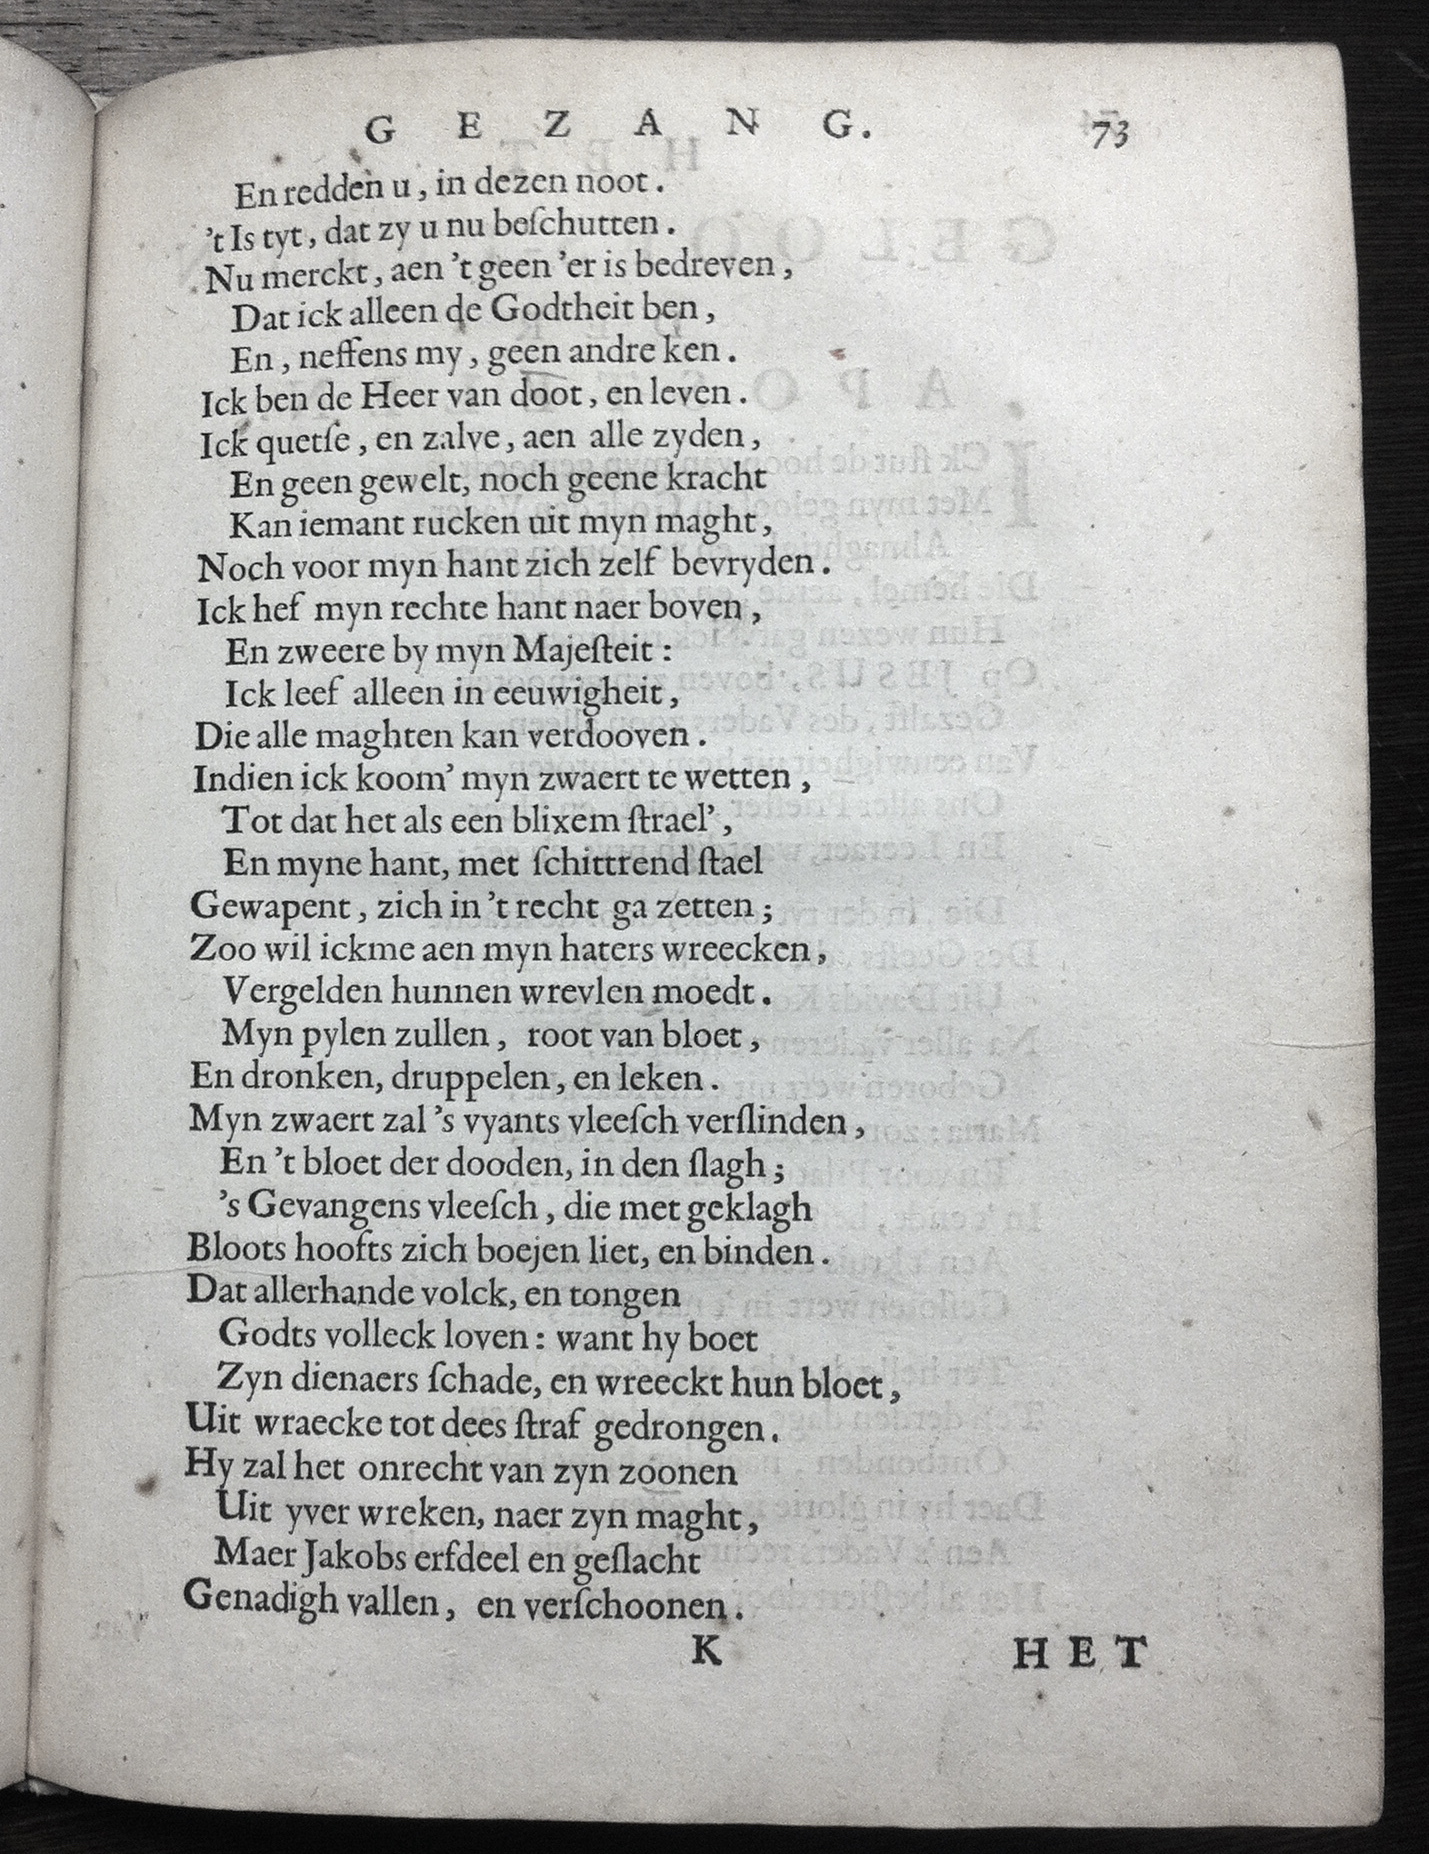 GEZANG. 73
En redden u, in dezen noot.
't Is tyt, dat zy u nu beſchutten.
Nu merckt, aen 't geen 'er is bedreven,
Dat ick alleen de Godtheit ben,
En, neffens my, geen andre ken.
Ick ben de Heer van doot, en leven.
Ick quetſe, en zalve, aen alle zyden,
En geen gewelt, noch geene kracht
Kan iemant rucken uit myn maght,
Noch voor myn hant zich zelf bevryden.
Ick hef myn rechte hant naer boven,
En zweere by myn Majeſteit:
Ick leef alleen in eeuwigheit,
Die alle maghten kan verdooven.
Indien ick koom' myn zwaert te wetten,
Tot dat het als een blixem ſtrael',
En myne hant, met ſchittrend ſtael
Gewapent, zich in 't recht ga zetten;
Zoo wil ickme aen myn haters wreecken,
Vergelden hunnen wrevlen moedt.
Myn pylen zullen, root van bloet,
En dronken, druppelen, en leken.
Myn zwaert zal 's vyants vleeſch verſlinden,
En 't bloet der dooden, in den ſlagh;
's Gevangens vleeſch, die met geklagh
Bloots hoofts zich boejen liet, en binden.
Dat allerhande volck, en tongen
Godts volleck loven: want hy boet
Zyn dienaers ſchade, en wreeckt hun bloet,
Uit wraecke tot dees ſtraf gedrongen.
Hy zal het onrecht van zyn zoonen
Uit yver wreken, naer zyn maght,
Maer Jakobs erfdeel en geſlacht
Genadigh vallen, en verſchoonen.
K HET